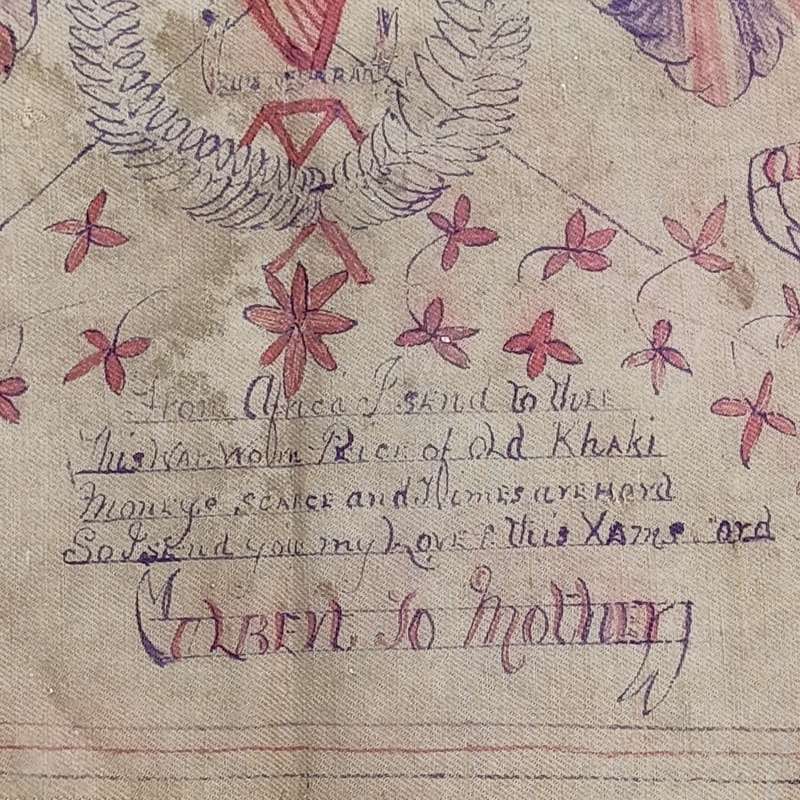 From Africa I send to thee
This War worn Piece of old Khaki
Money's scarce and Times are Hard
So I send you my Love & this Xams Card
Alben To Mother